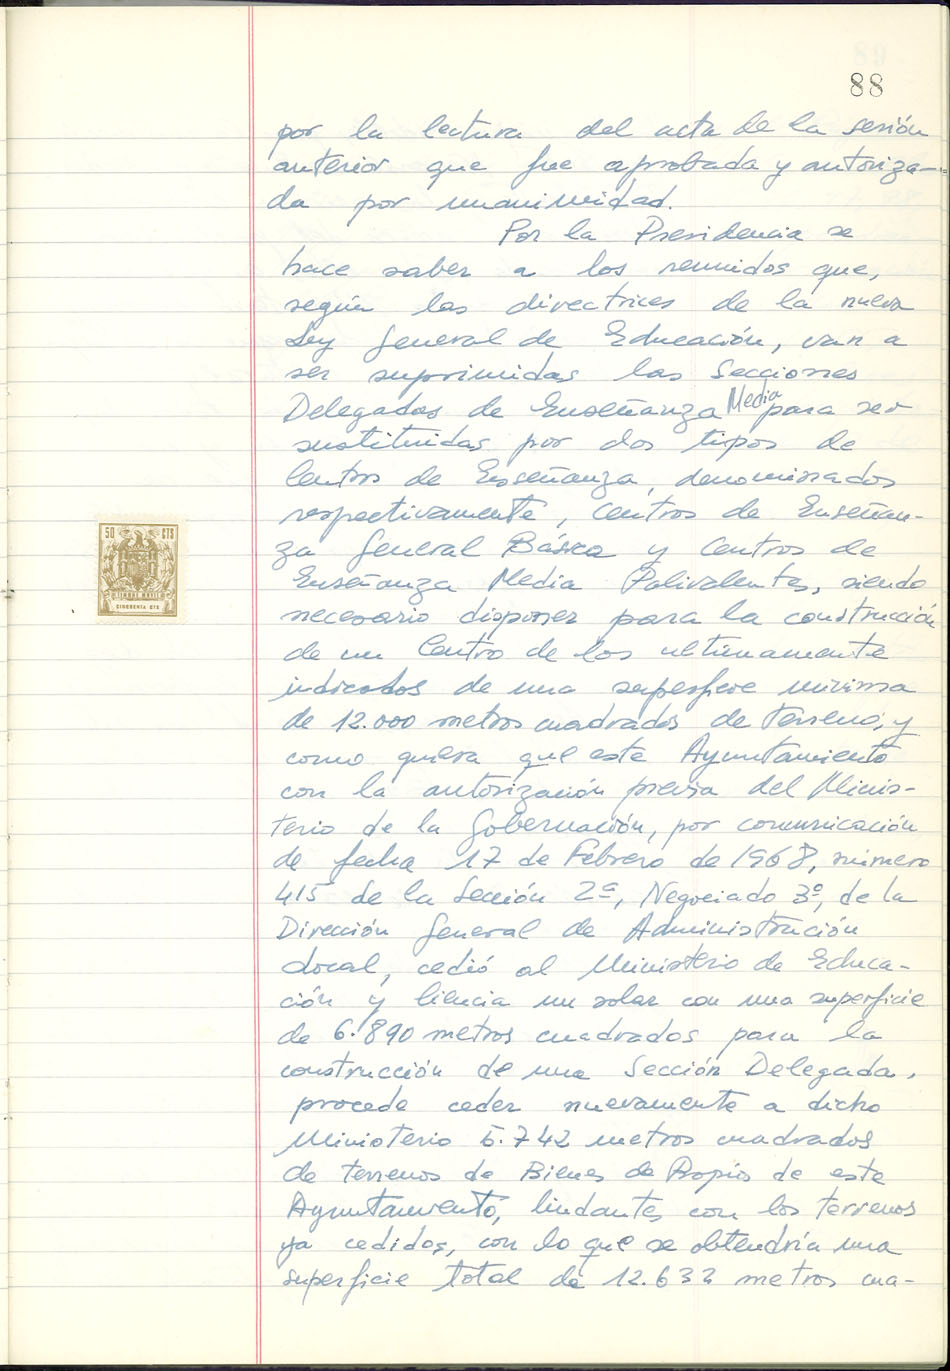 88
por la lectura del acta de la sesión
anterior que fue aprobada y autoriza-
da por unanimidad.
Por la Presidencia se
hace saber a los reunidos que,
según las directrices de la nueva
Ley General de Educación, van a
ser suprimidas las Secciones
Delegadas de Enseñanza Media para ser
sustituidas por dos tipos de
Centros de Enseñanza, denominados
respectivamente, Centros de Enseñan-
za General Básica y Centros de
Enseñanza Media Polivalentes, siendo
necesario disponer para la construcción
de un Centro de los ultimamente
indicados de una superficie minima
de 12.000 metros cuadrados de terreno, y
como quiera que este Ayuntamiento
con la autorización previa del Minis-
terio de la Gobernación, por comunicación
de fecha 17 de Febrero de 1968, número
415 de la Sección 2ª, Negociado 3º, de la
Dirección General de Administración
Local, cedió al Ministerio de Educa-
ción y Ciencia un solar con una superficie
de 6.890 metros cuadrados para la
construcción de una Sección Delegada,
procede ceder nuevamente a dicho
Ministerio 5.742 metros cuadrados
de terrenos de Bienes de Propios de este
Ayuntamiento, lindantes con los terrenos
ya cedidos, con lo que se obtendría una
superficie total de 12.632 metros cua-
50 CTS
TIMBRE MOVIL
CINCUENTA CTS